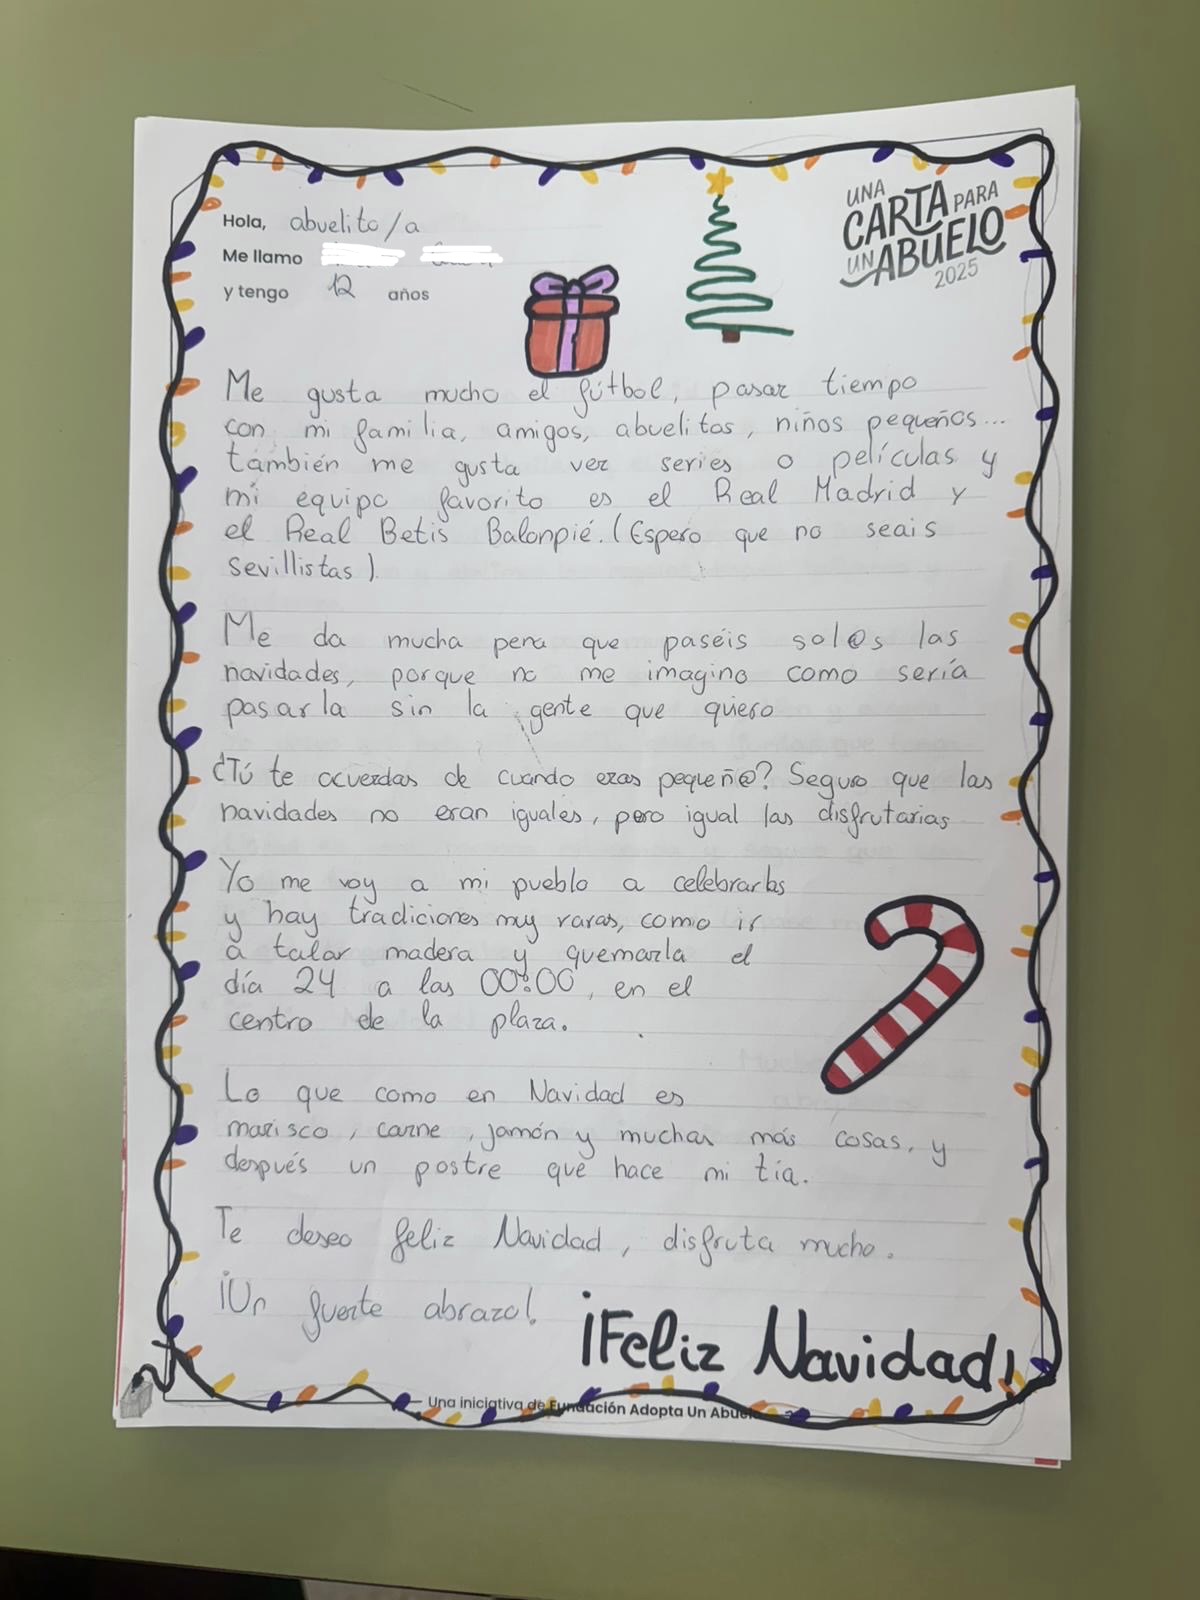 UNA
CARTA PARA
UN ABUELO
2025
Hola, abuelito/a
Me llamo
y tengo 12 años
Me gusta mucho el fútbol, pasar tiempo
con mi familia, amigos, abuelitos, niños pequeños...
también me gusta ver series o películas y
mi equipo favorito es el Real Madrid y
el Real Betis Balonpié. (Espero que no seais
sevillistas).
Me da mucha pena que paséis sol@s las
navidades, porque no me imagino como sería
pasarla sin la gente que quiero
¿Tú te acuerdas de cuando eras pequeñ@? Seguro que las
navidades no eran iguales, pero igual las disfrutarias
Yo me voy a mi pueblo a celebrarlas
y hay tradiciones muy raras, como ir
a talar madera y quemarla el
día 24 a las 00:00, en el
centro de la plaza.
Lo que como en Navidad es
marisco, carne, jamón y muchas más cosas, y
después un postre que hace mi tía.
Te deseo feliz Navidad, disfruta mucho.
¡Un fuerte abrazo!
¡Feliz Navidad!
Una iniciativa de Fundación Adopta Un Abuelo